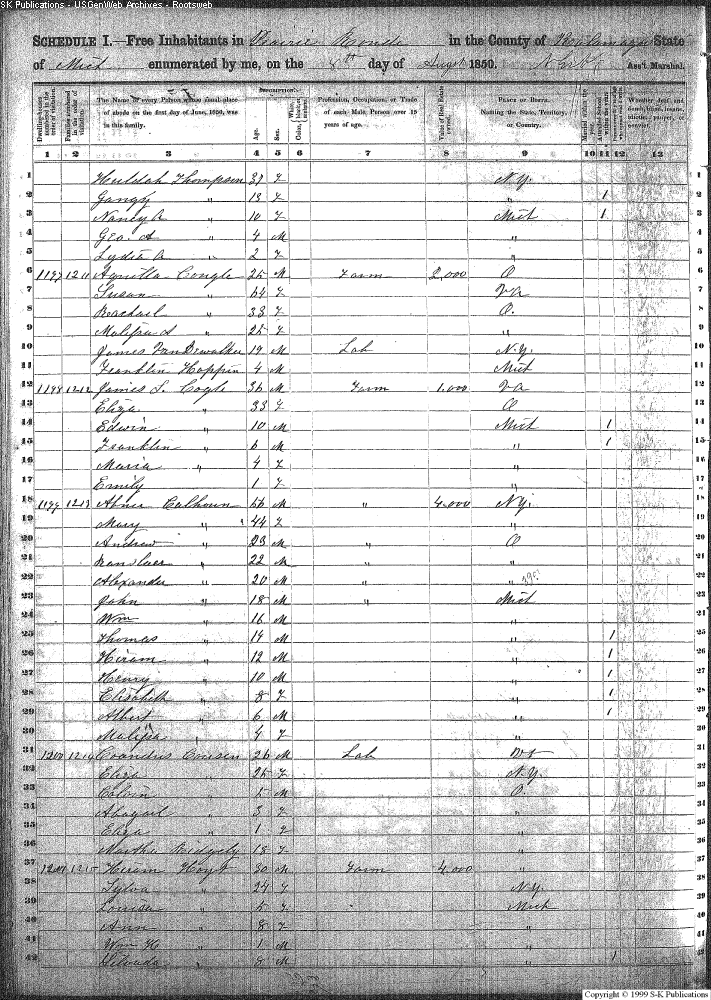 SK Publications - USGenWeb Archives - Rootsweb
SCHEDULE I.—Free Inhabitants in Prairie Ronde in the County of Kalamazoo State
of Mich enumerated by me, on the 8th day of Augst 1850. Ass't Marshal.
Dwelling-houses numbered in the order of visitation.
Families numbered in the order of visitation.
The Name of every Person whose usual place of abode on the first day of June, 1850, was in this family.
DESCRIPTION.
Age.
Sex.
White, Color, black, or mulatto.
Profession, Occupation, or Trade of each Male Person over 15 years of age.
Value of Real Estate owned.
PLACE OF BIRTH. Naming the State, Territory, or Country.
Married within the year.
Attended School within the year.
Whether deaf and dumb, blind, insane, idiotic, pauper, or convict.
1 2 3 4 5 6 7 8 9 10 11 12 13
1 Huldah Thompson 37 F N.Y. 1
2 " 13 F " 1 2
3 Nancy A " 10 F Mich 1 3
4 Geo. A " 4 M " 4
5 Lydia A " 2 F " 5
6 1197 1211 Congle 25 M Farm 2,000 O 6
7 Susan " 64 F Va 7
8 Rachael " 33 F O. 8
9 Malissa A " 25 F " 9
10 James VanDewalker 19 M Lab N.Y. 10
11 Franklin Hoppin 4 M Mich 11
12 1198 1212 James L. Cogle 36 M Farm 1,000 Va 12
13 Eliza " 33 F O 13
14 Edwin " 10 M Mich 1 14
15 Franklin " 6 M " 1 15
16 Maria " 4 F " 16
17 Emily " 1 F " 17
18 1199 1213 Abner Calhoun 56 M " 4,000 N.Y. 18
19 Mary " 44 F " 19
20 Andrew " 23 M " O 20
21 Ranslaer " 22 M " " 21
22 Alexander " 20 M " " 22
23 John " 18 M " Mich 23
24 Wm " 16 M " 24
25 Thomas " 14 M " 1 25
26 Hiram " 12 M " 1 26
27 Henry " 10 M " 1 27
28 Elisabeth " 8 F " 1 28
29 Albert " 6 M " 1 29
30 Malissa " 4 F " 30
31 1200 1214 26 M Lab Vt 31
32 Eliza " 25 F N.Y. 32
33 Calvin " 5 M O. 33
34 Abagail " 3 F " 34
35 Eliza " 1 F " 35
36 Martha Ridgely 13 F " 36
37 1201 1215 Hiram Hoyt 30 M Farm 4,000 " 37
38 Sylva " 24 F N.Y. 38
39 Louisa " 5 F Mich 39
40 Ann " 8 F " 40
41 Wm H " 1 M " 41
42 " 8 M " 1 42
Copyright © 1999 S-K Publications